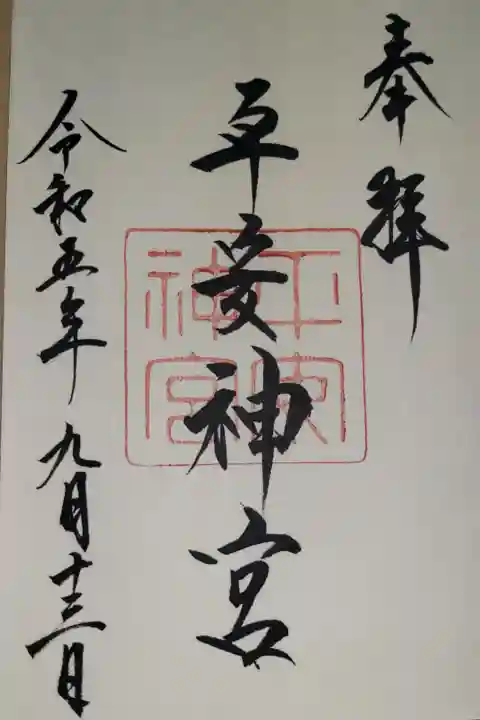 奉拝
平安神宮
平安
神宮
令和五年九月十三日